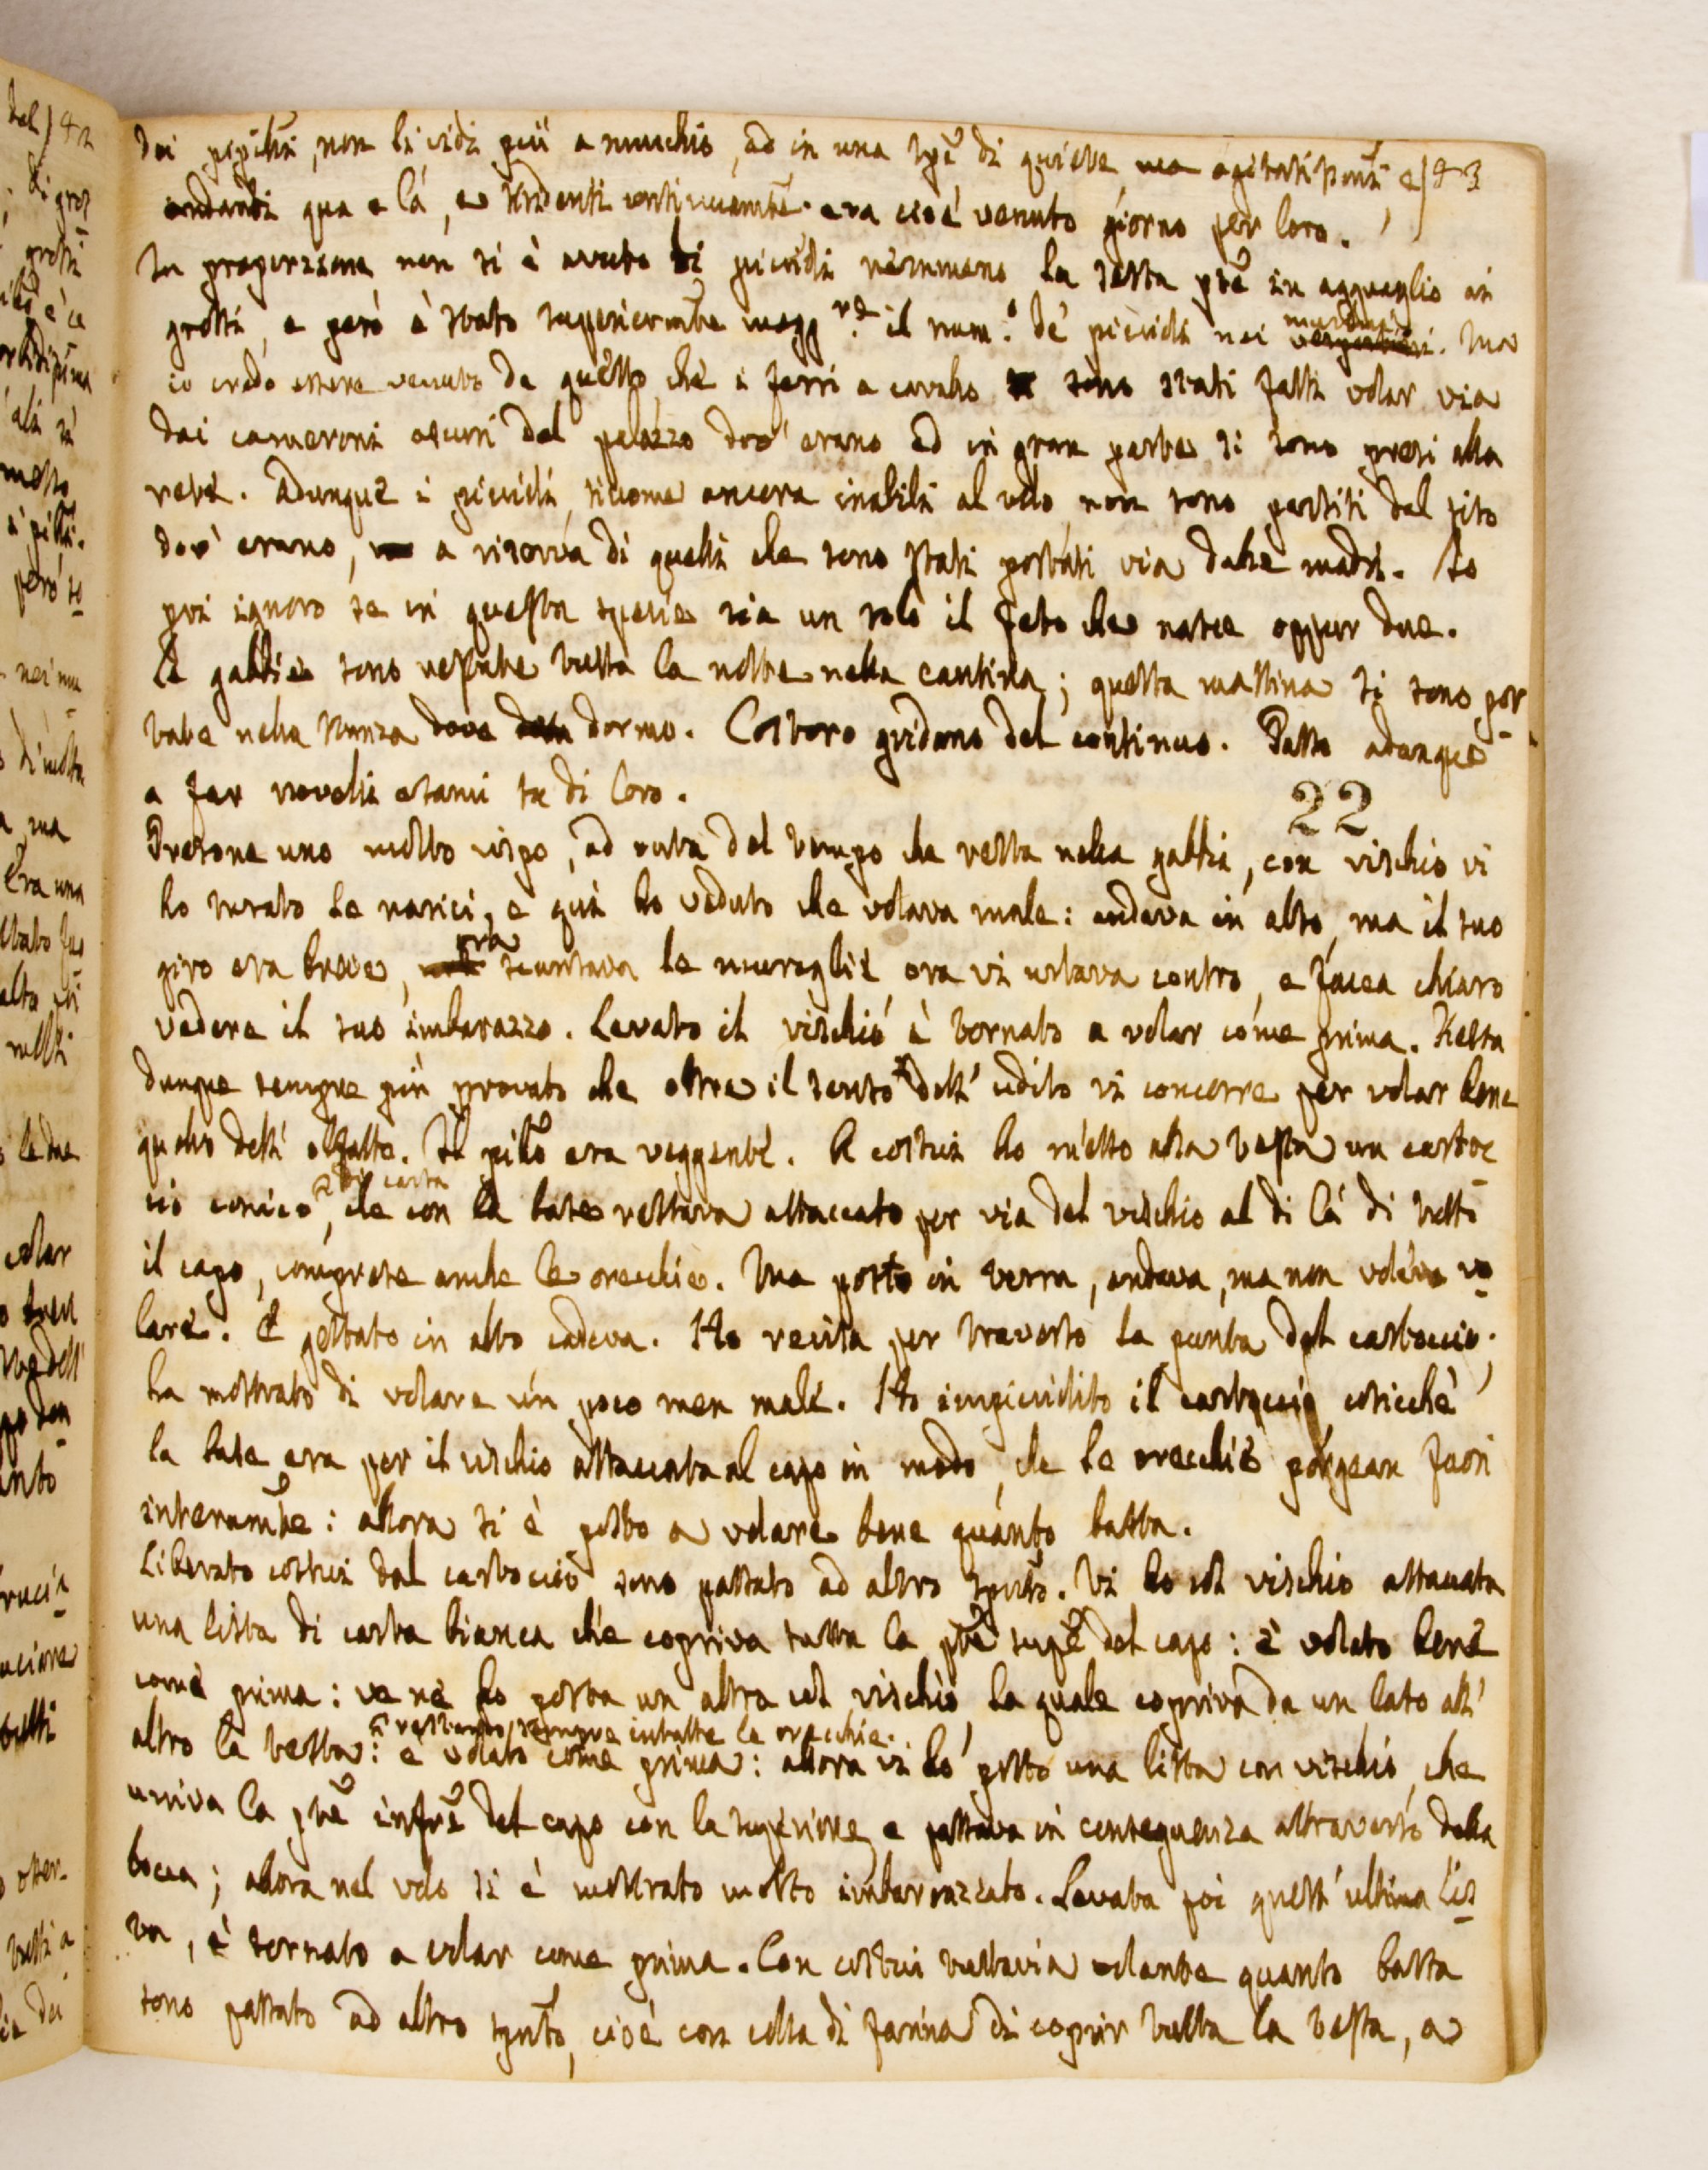 dei pipistri, non li vidi più a mucchio, ad in una spẽ di quiete, ma agitatissimi, e 83
andanti qua e là, e stridenti continuamte. era cioè venuto giorno per loro.
In proporzione non si è avuto di piccioli nemmeno la sesta pte in agguaglio ai
grossi, e però è stato superiormte magg.re il num.o de' piccioli nei murini. Ma
io credo essere venuto da questo, che i ferri a cavallo sono stati fatti volar via
dai cameroni oscuri del palazzo dov' erano ed in gran parte si sono presi alla
rete. Adunque i piccioli, siccome ancora inabili al volo, non sono partiti dal sito
dov' erano, a riserva di quelli che sono stati portati via dalle madri. Io
poi ignoro se in questa specie sia un solo il feto che nasce oppur due.
Le gabbie sono restate tutta la notte nella cantina; questa mattina si sono por
tate nella stanza dove dormo. Costoro gridano del continuo. Passo adunque
a far novelli esami su di loro.
22
Presone uno molto vispo, ad onta del tempo che resta nella gabbia, con vischio vi
ho turato le narici, e qui ho veduto che volava male: andava in alto, ma il suo
giro era breve, ora scansava le muraglie ora vi urtava contro, e facea chiaro
vedere il suo imbarazzo. Levato il vischio è tornato a volar come prima. Resta
dunque sempre più provato che oltre il senso dell' udito vi concorre per volar bene
quello dell' olfatto. Il pilo era veggente. A costui ho messo alla testa un cartoc
cio conico di carta, che con la base restava attaccato per via del vischio al di là di tutto
il capo, comprese anche le orecchie. Ma posto in terra, andava, ma non voleva vo
lare. E gettato in alto cadeva. Ho recisa per traverso la punta del cartoccio.
ha mostrato di volare un poco men male. Ho impicciolito il cartoccio, cosicchè
la base era per il vischio attaccata al capo in modo, che le orecchie porgean fuori
interamte: allora si è posto a volare bene quanto basta.
Liberato costui dal cartoccio sono passato ad altro spmto. Vi ho col vischio attaccata
una lista di carta bianca che copriva tutta la pte supe del capo: è volato bene
come prima: ve ne ho posta un altra col vischio la quale copriva da un lato all'
restando sempre intatte le orecchie.
altro la testa: e volato come prima: allora vi ho posto una lista con vischio, che
univa la pte infre del capo con la superiore, e passava in conseguenza attraverso della
bocca; allora nel volo si è mostrato molto imbarrazzato. Levata poi quest' ultima lis
ta, è tornato a volar come prima. Con costui tuttavia volante quanto basta
sono passato ad altro spmto, cioè con colla di farina di coprir tutta la testa, a